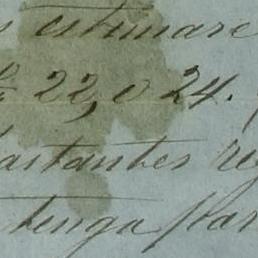 estimare
22, o 24.
bastantes
tenga par